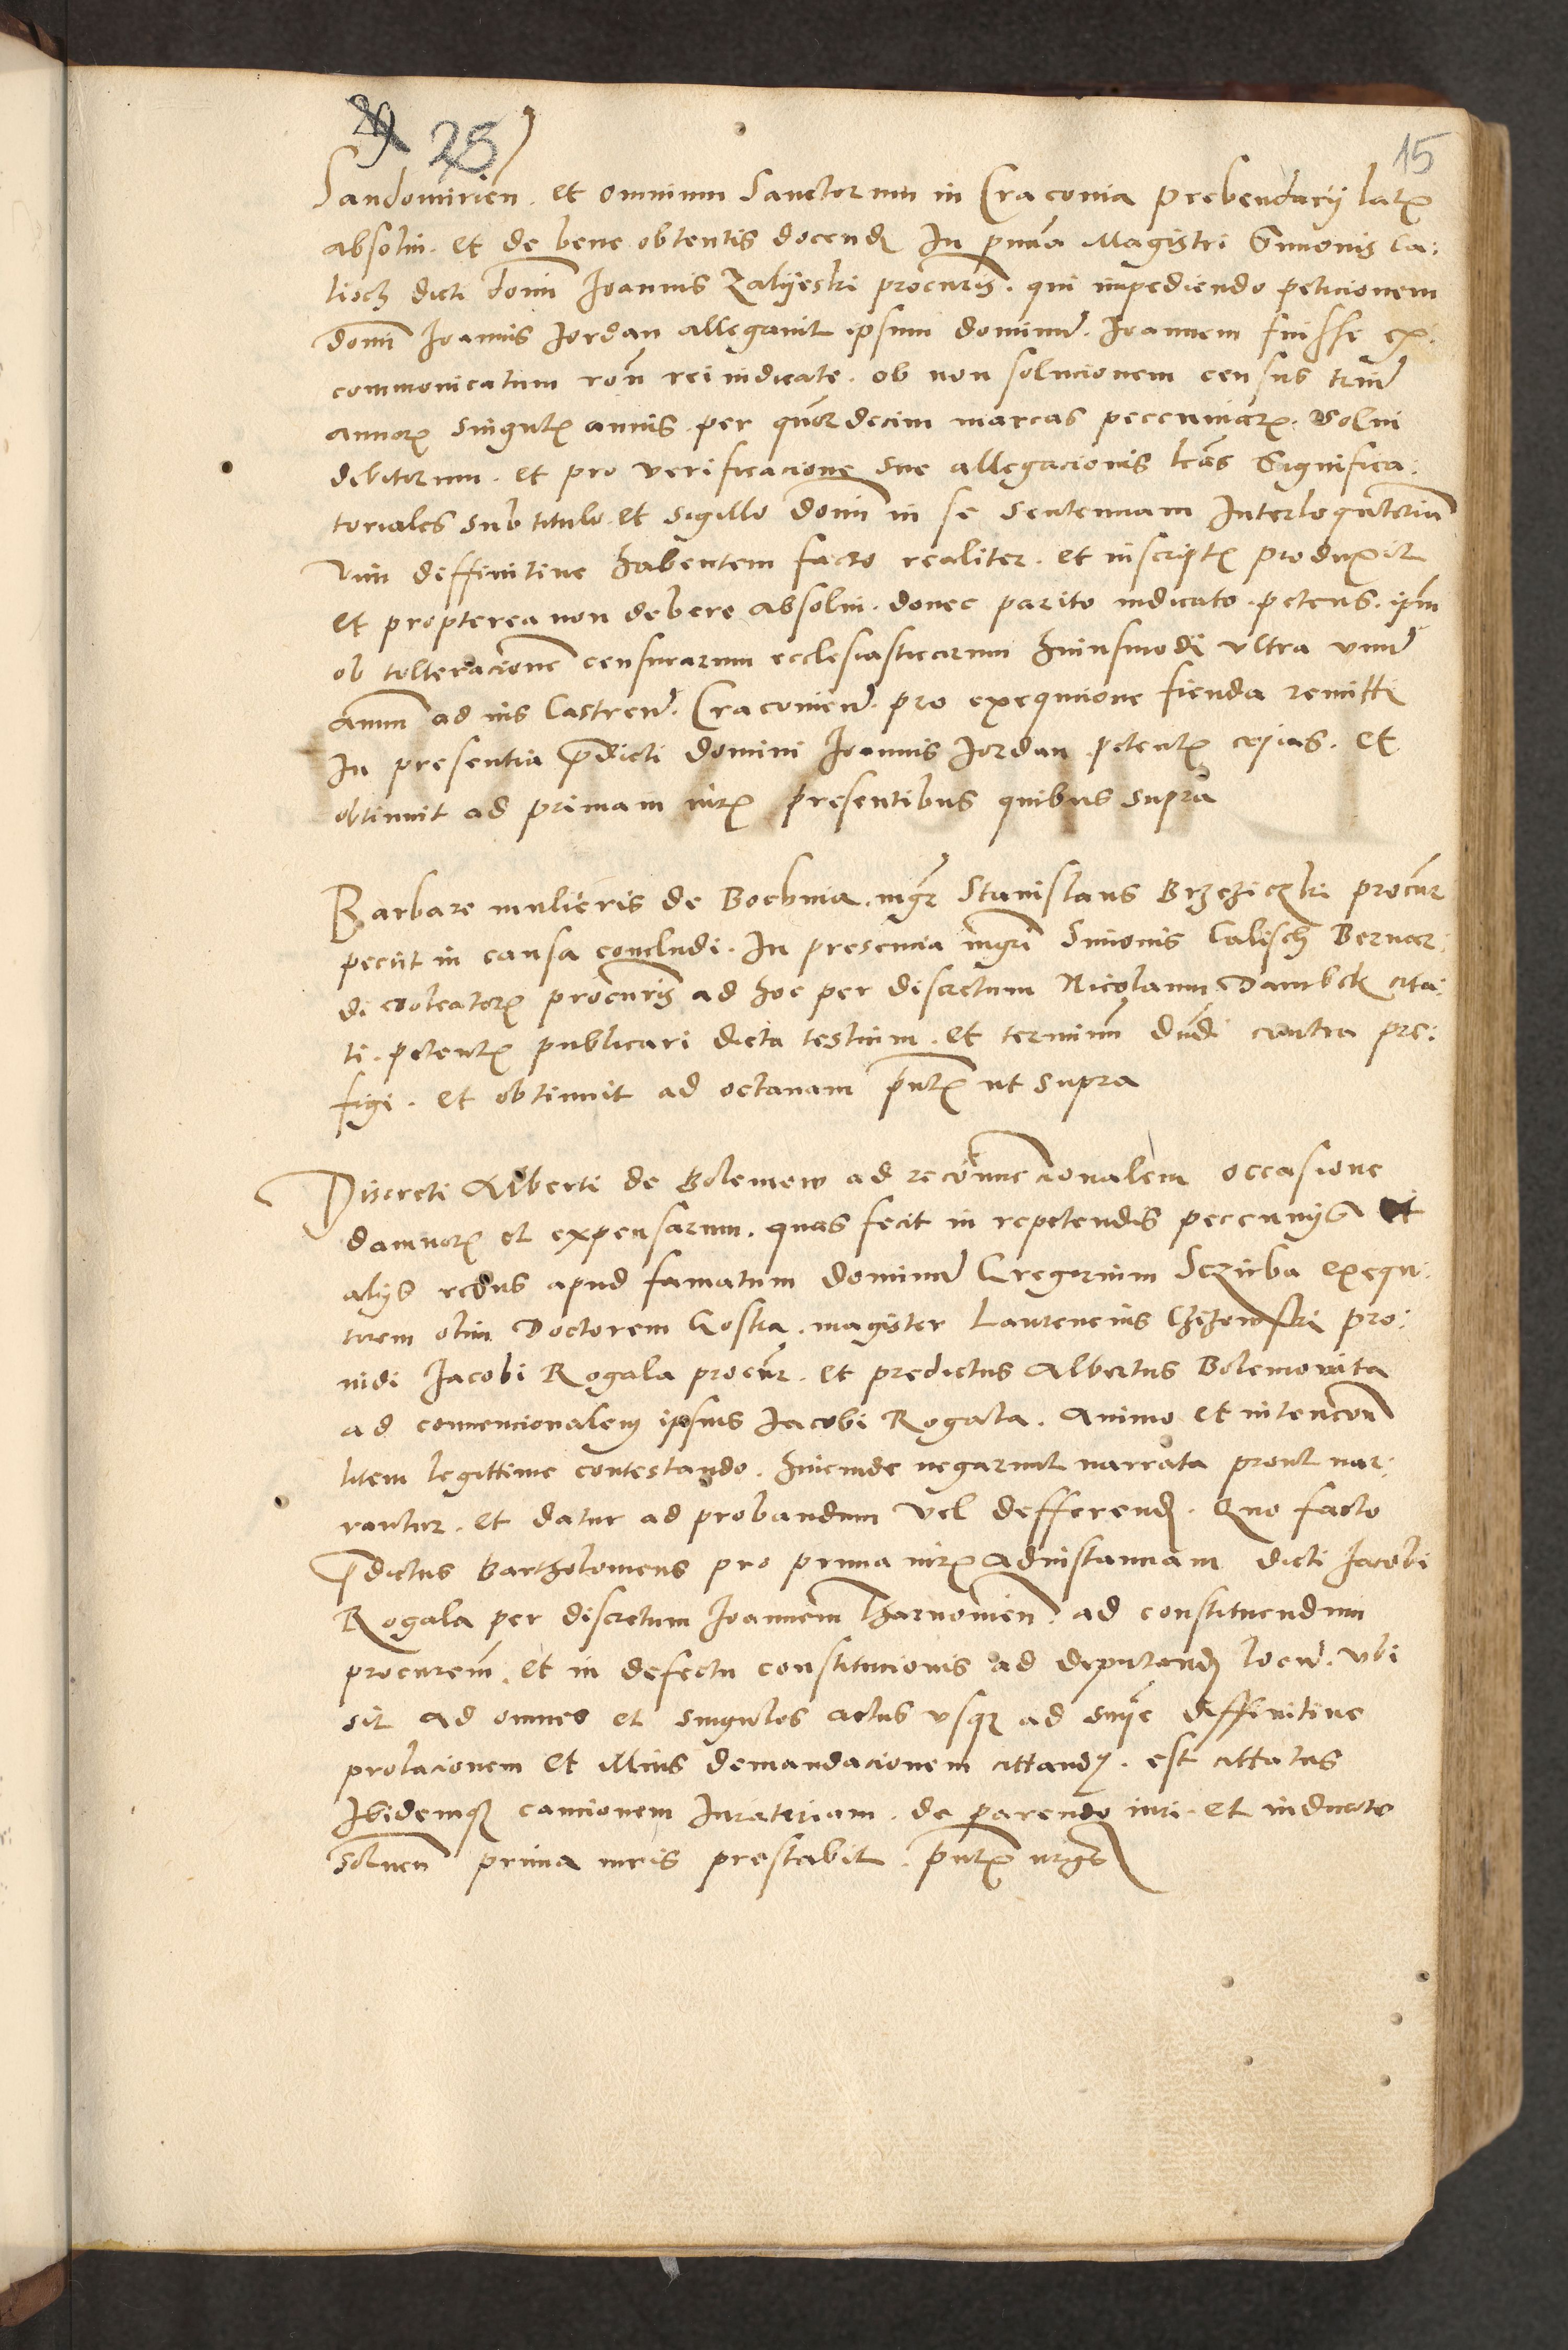 29 25) 15
Sandomirien. et omnium Sanctorum in Craconia prebendarij lat
absolui. et de bene obtentis docend In pnna Magistri Simonis Ca:
lisch dicti domi Joannis Zalijeski procuris. qui impediendo peticionem
domi Joannis Jordan allegauit ipsum dominum. Joannem fuisse ex:
commonicatum ron rei iudicate. ob non solucionem census trium
annor singul annis per quor decim marcas peccuniar. Solui
debitorum. et pro verificacione sue allegacionis lras Significa:
toriales sub titulo et sigillo domi in se sentenciam Interlogutoriam
vim diffinitiue habentem facto realiter. et in script produxit
et propterea non debere absolui. donec parito iudicato. petens. ipm
ob tolleracione censurarum ecclesiasticarum huiusmodi vltra vnum
annum ad ius Castren. Craconien. pro exequcione fienda remitti
In presentia pdicti domini Joannis Jordan petent copias. et
obtinuit ad primam iur presentibus quibus supra
Barbare mulieris de Bochnia. mgr Stanislaus Brzeziczki procur
petiit in causa concludi. In presencia mgri Simonis Calisch Bernar:
di procuris ad hoc per discretum Nicolaum Dambek cita:
ti. petent publicari dicta testium. et terminum dndi contra pre:
figi. et obtinuit ad octauam pnt ut supra
Discreti Alberti de Bolemow ad reconuencionalem occasione
damnor et expensarum. quas fecit in repetendis peccunijs et
alijs rebus apud famatum dominum Gregorium Sczirba exequ:
torem olim Doctorem Gostka. magister Laurencius Chizewski pro:
uidi Jacobi Rogala procur. et predictus Albertus Bolemouita
ad conuencionalem ipsius Jacobi Rogala. Animo et intencon
litem legittime contestando. hincinde negarunt narrata prout nar:
rantur. et datur ad probandum vel defferend. Quo facto
pdictus Bartholomeus pro prima iur ad instanciam dicti Jacobi
Rogala per discretum Joannem Tharnouien. ad constituendum
procurem. et in defectu constitucionis ad deputand locum. vbi
sit ad omnes et singulos actus vsq ad snie diffinitiue
prolacionem et illius demandacionem cittandj. est cittatus
Ibidemq caucionem Juratoriam. de parendo iuri. et iudicato
soluen prima iuris prestabit. pnt